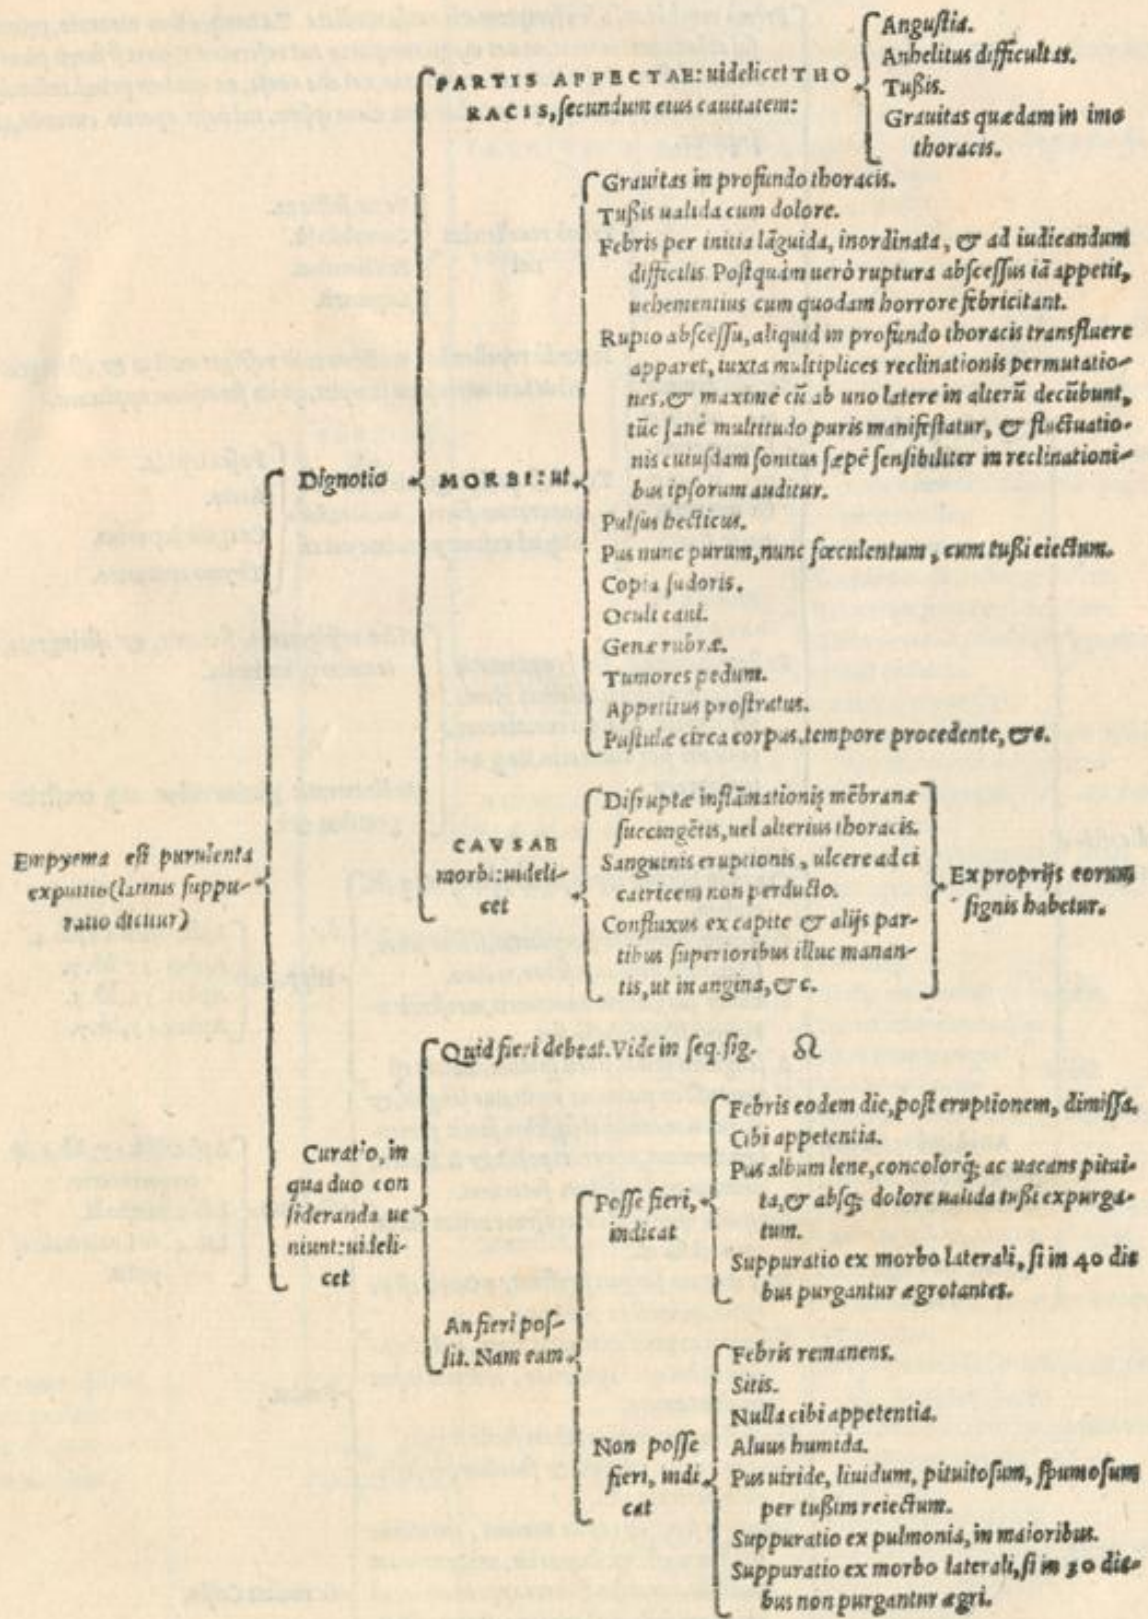 Empyema est purulenta
expuitio (latinis suppu-
ratio dicitur)
Dignotio
PARTIS AFFECTAE: uidelicet THO
RACIS, secundum eius cauitatem:
Angustia.
Anhelitus difficultas.
Tußis.
Grauitas quædam in imo
thoracis.
MORBI: ut
Grauitas in profundo thoracis.
Tußis ualida cum dolore.
Febris per initia lãguida, inordinata, & ad iudicandum
difficilis. Postquàm uerò ruptura abscessus iã appetit,
uehementius cum quodam horrore febricitant.
Rupto abscessu, aliquid in profundo thoracis transfluere
apparet, iuxta multiplices reclinationis permutatio-
nes, & maximè cũ ab uno latere in alterũ decũbunt,
tũc sanè multitudo puris manifestatur, & fluctuatio-
nis cuiusdam sonitus sæpè sensibiliter in reclinationi-
bus ipsorum auditur.
Pulsus hecticus.
Pus nunc purum, nunc fœculentum, cum tußi eiectum.
Copia sudoris.
Oculi caui.
Genæ rubræ.
Tumores pedum.
Appetitus prostratus.
Pustulæ circa corpus, tempore procedente, &c.
CAVSAE
morbi: uideli-
cet
Disruptæ inflãmationis mẽbranæ
succingẽtis, uel alterius thoracis.
Sanguinis eruptionis, ulcere ad ci
catricem non perducto.
Confluxus ex capite & alijs par-
tibus superioribus illuc manan-
tis, ut in angina, &c.
Ex proprijs eorum
signis habetur.
Curatio, in
qua duo con
sideranda ue
niunt: uideli-
cet
Quid fieri debeat. Vide in seq. sig. ☊
An fieri pos-
sit. Nam eam
Posse fieri,
indicat
Febris eodem die, post eruptionem, dimissa.
Cibi appetentia.
Pus album lene, concolorq́; ac uacans pitui-
ta, & absq; dolore ualida tußi expurga-
tum.
Suppuratio ex morbo laterali, si in 40 die
bus purgantur ægrotantes.
Non posse
fieri, indi
cat
Febris remanens.
Sitis.
Nulla cibi appetentia.
Aluus humida.
Pus uiride, liuidum, pituitosum, spumosum
per tußim reiectum.
Suppuratio ex pulmonia, in maioribus.
Suppuratio ex morbo laterali, si in 30 die-
bus non purgantur ægri.